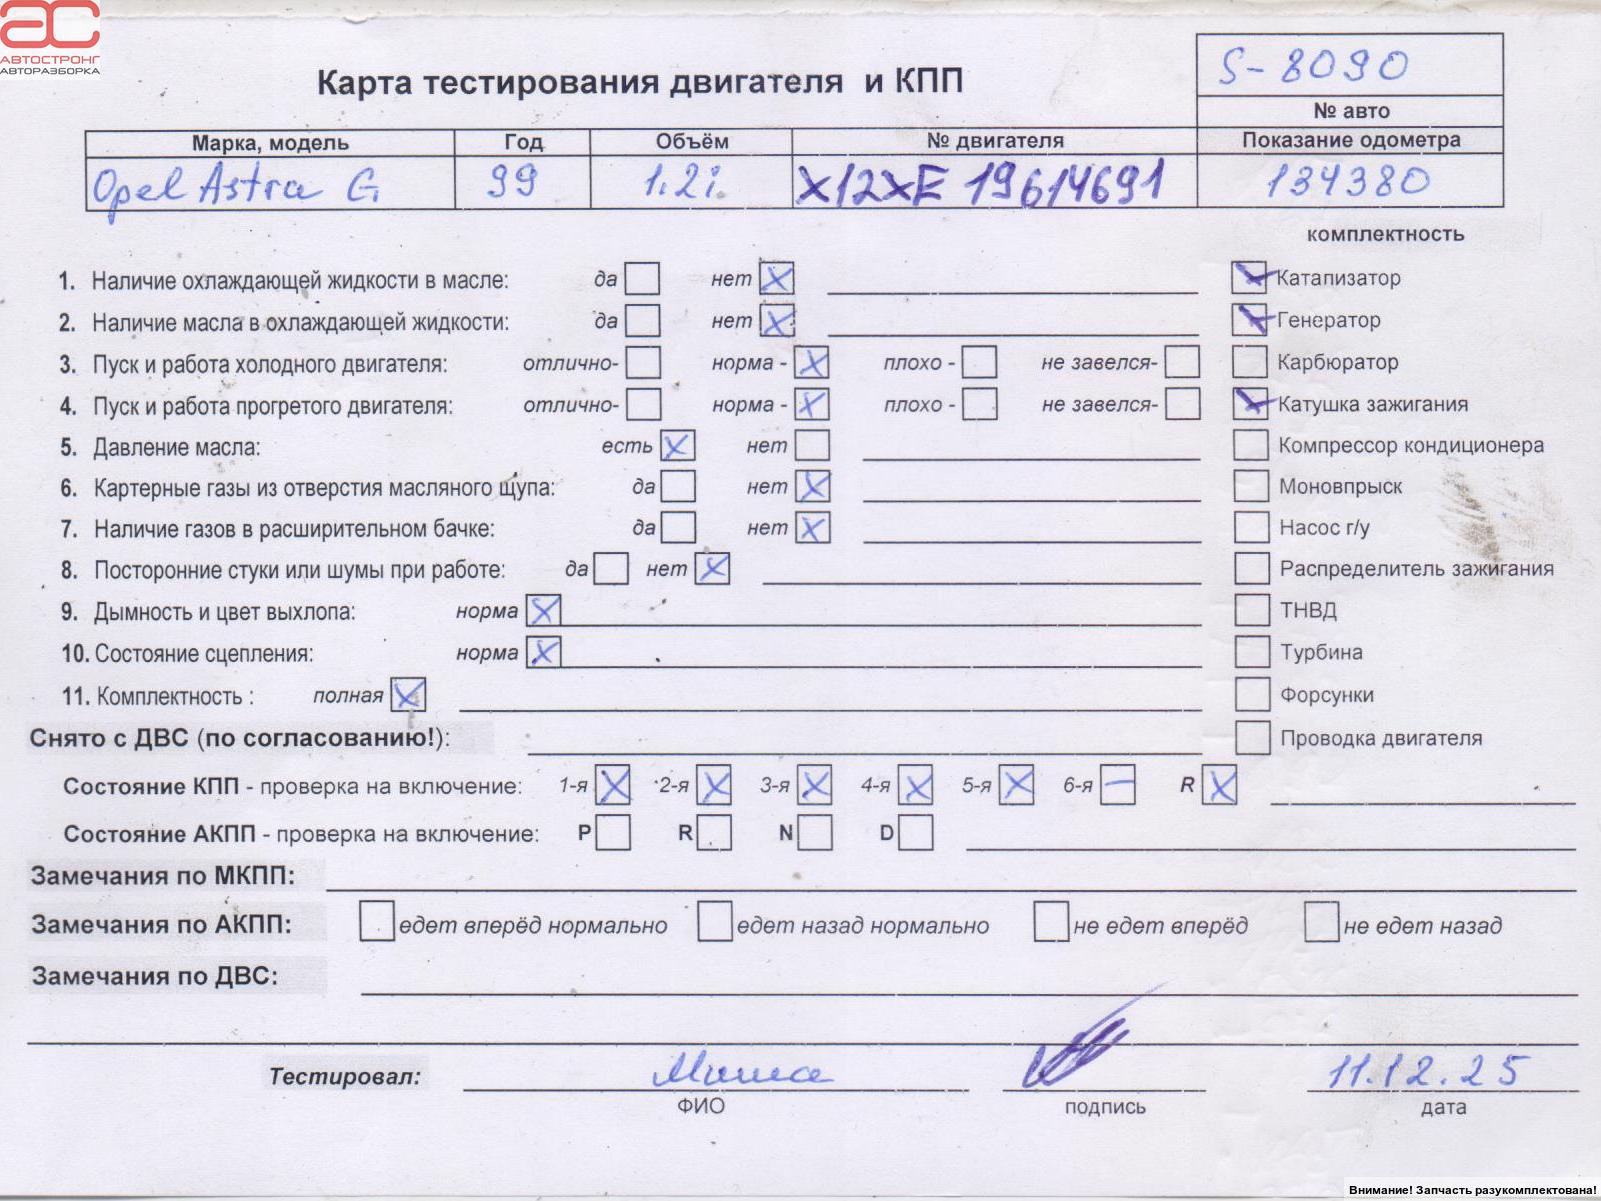 АС
АВТОСТРОНГ
АВТОРАЗБОРКА
Карта тестирования двигателя и КПП
S-8090
№ авто
Марка, модель Год Объём № двигателя Показание одометра
Opel Astra G 99 1.2i X12XE 19614691 134380
комплектность
1. Наличие охлаждающей жидкости в масле: да нет X Катализатор
2. Наличие масла в охлаждающей жидкости: да нет X Генератор
3. Пуск и работа холодного двигателя: отлично- норма - X плохо - не завелся- Карбюратор
4. Пуск и работа прогретого двигателя: отлично- норма - X плохо - не завелся- Катушка зажигания
5. Давление масла: есть X нет Компрессор кондиционера
6. Картерные газы из отверстия масляного щупа: да нет X Моновпрыск
7. Наличие газов в расширительном бачке: да нет X Насос г/у
8. Посторонние стуки или шумы при работе: да нет X Распределитель зажигания
9. Дымность и цвет выхлопа: норма X ТНВД
10. Состояние сцепления: норма X Турбина
11. Комплектность : полная X Форсунки
Снято с ДВС (по согласованию!): Проводка двигателя
Состояние КПП - проверка на включение: 1-я X 2-я X 3-я X 4-я X 5-я X 6-я – R X
Состояние АКПП - проверка на включение: P R N D
Замечания по МКПП:
Замечания по АКПП: едет вперёд нормально едет назад нормально не едет вперёд не едет назад
Замечания по ДВС:
Тестировал: Миша 11.12.25
ФИО подпись дата
Внимание! Запчасть разукомплектована!